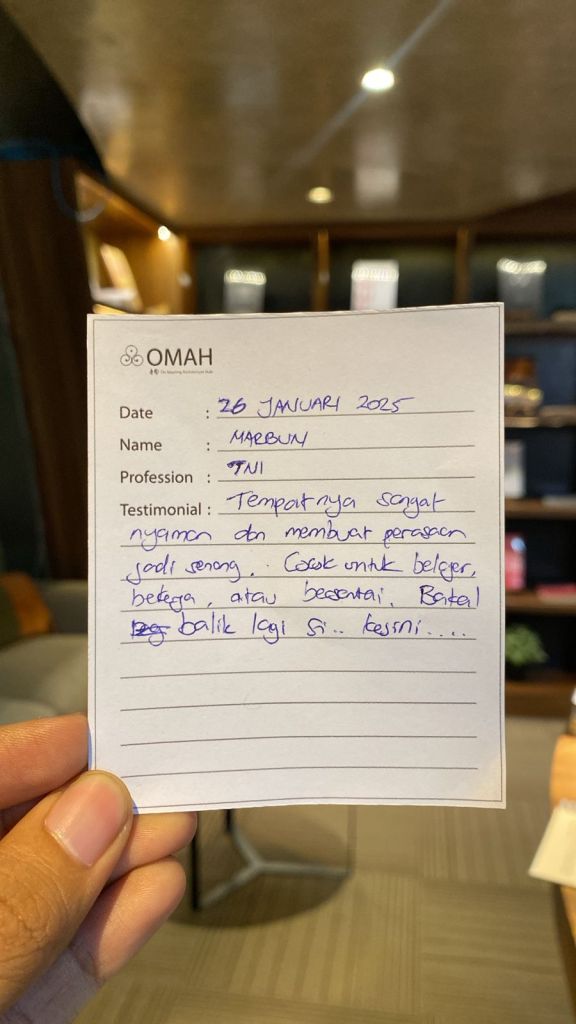 OMAH
Date : 26 JANUARI 2025
Name : MARBUN
Profession : TNI
Testimonial : Tempatnya sangat
nyaman dan membuat perasaan
jadi senang. Cocok untuk belajar,
bekerja, atau bersantai. Bakal
balik lagi si.. kesini....